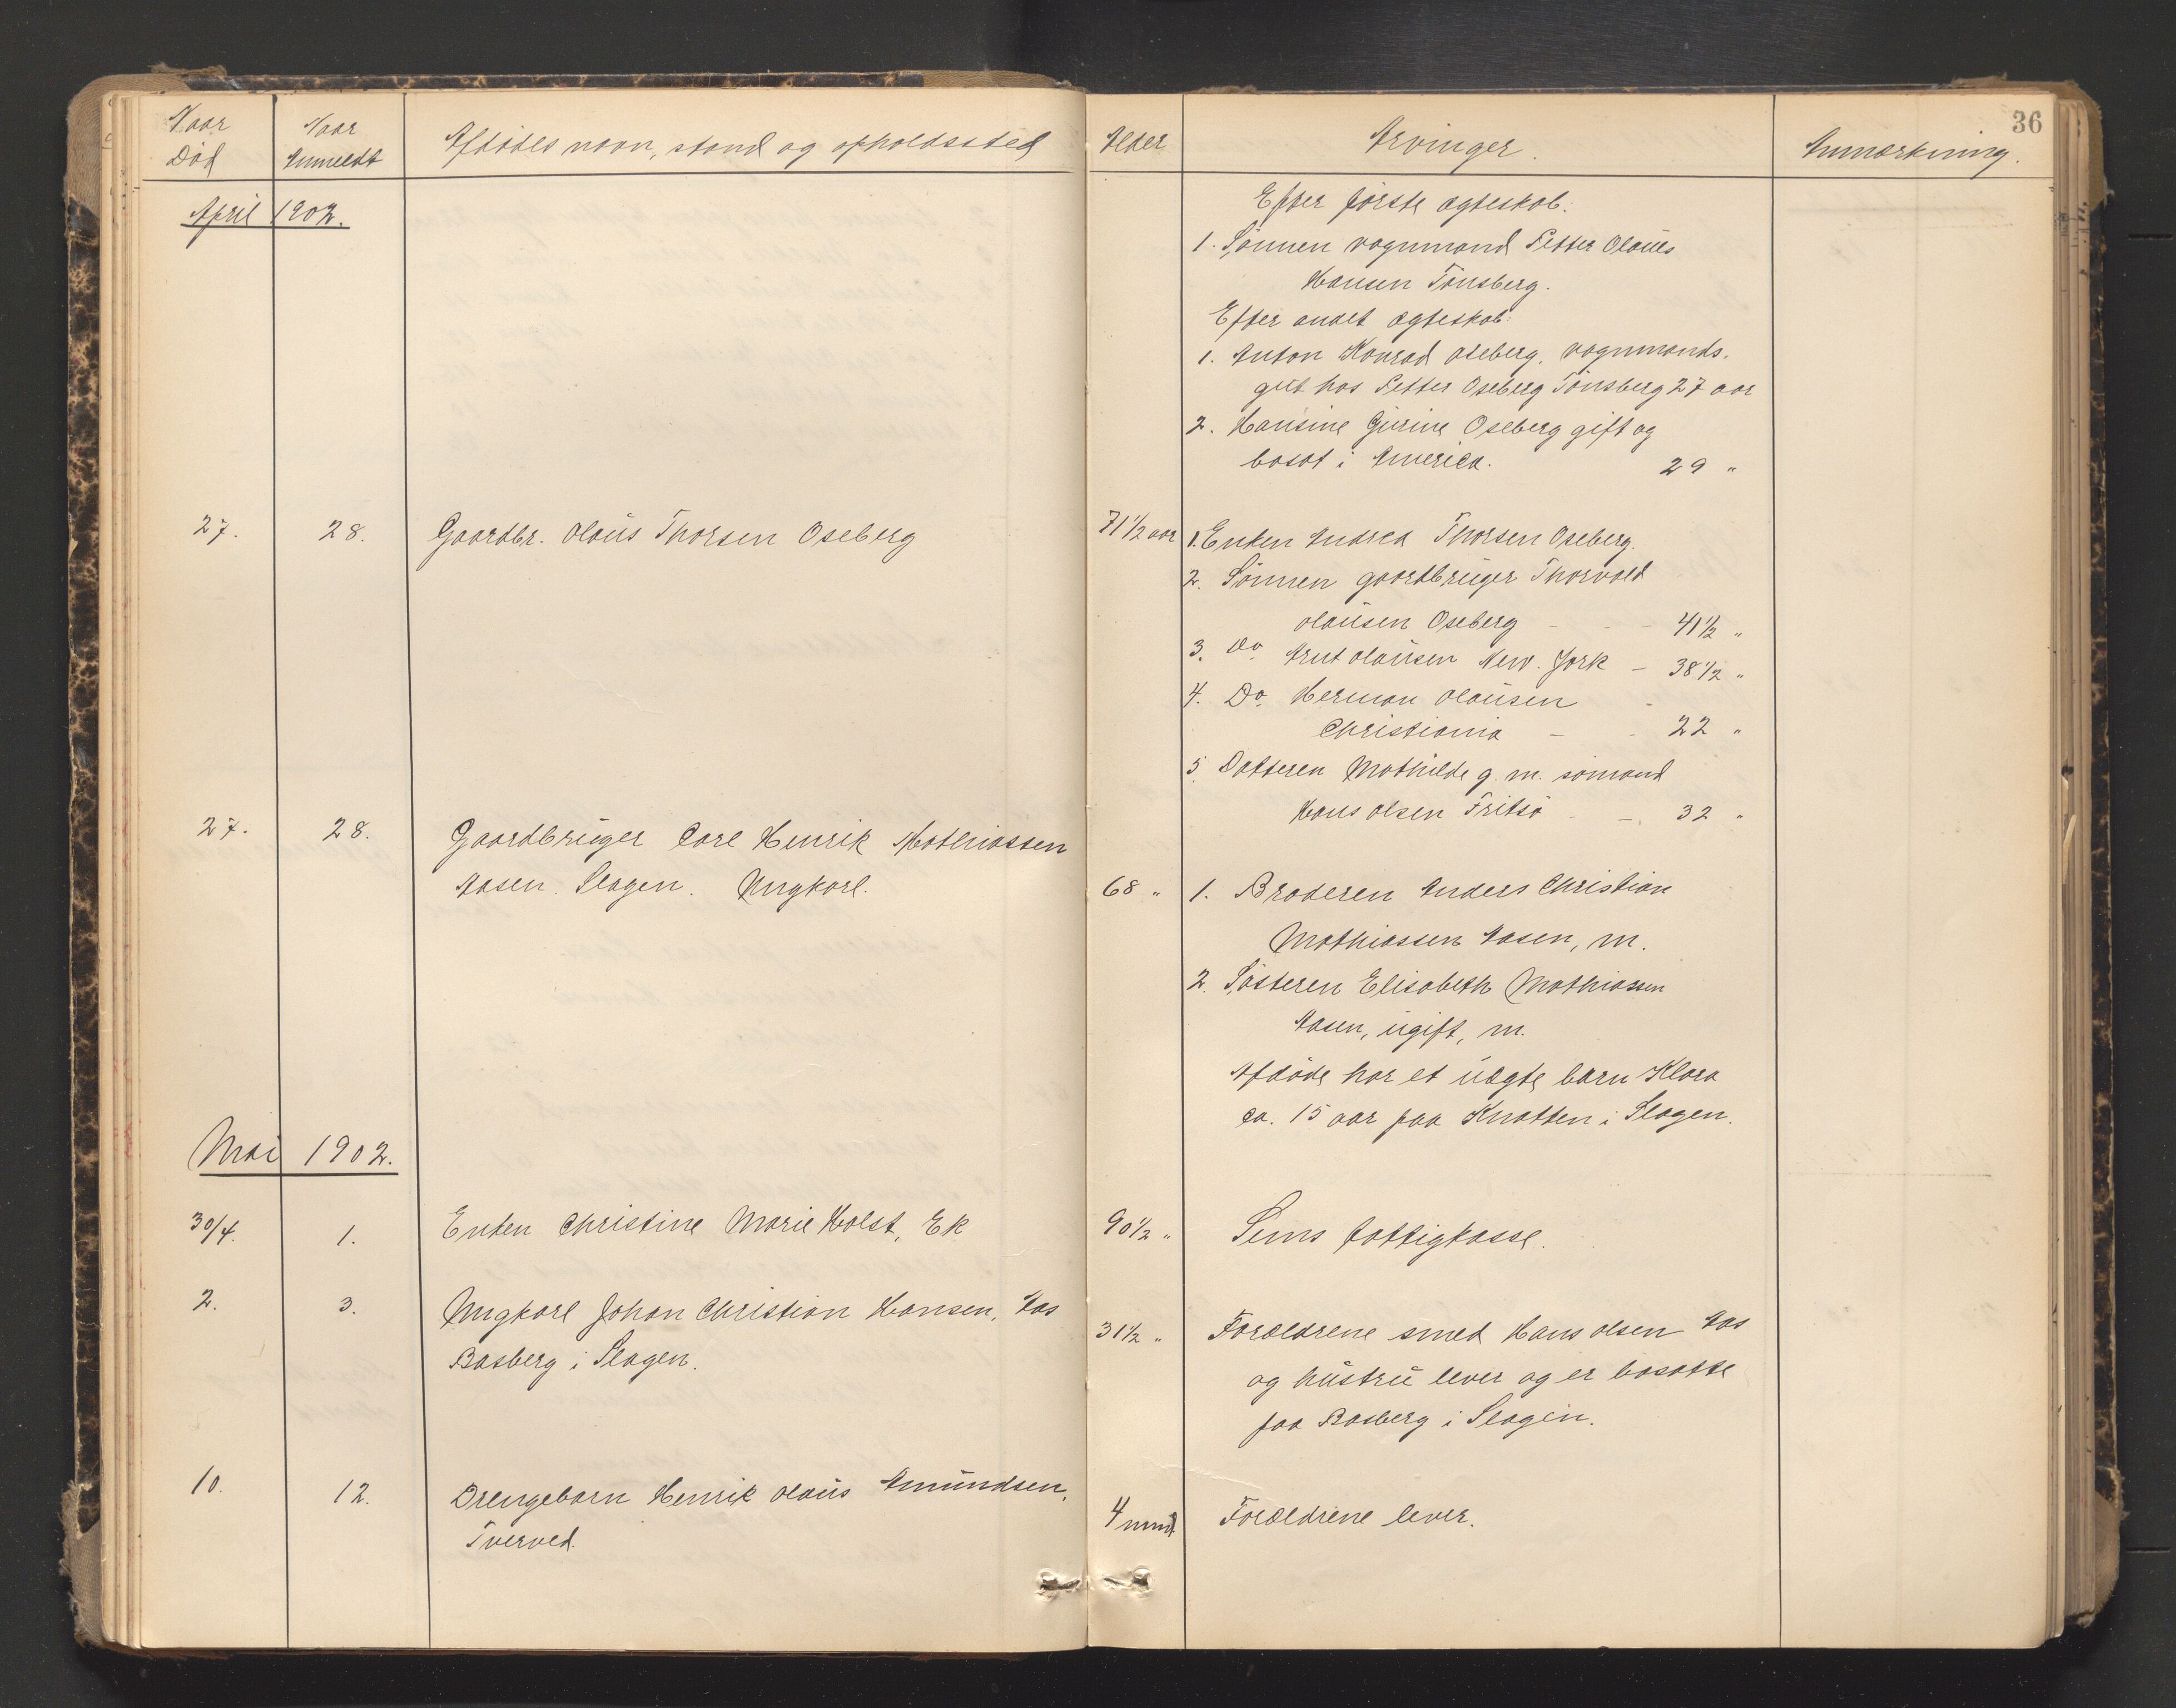 36
Naar Død
Naar Anmeldt
Afdødes navn, stand og opholdssted
Alder
Arvinger.
Anmærkning.
April 1902.
Efter første ægteskab:
1. Sønnen vognmand Petter Olaus
Hansen Tønsberg.
Efter andet ægteskab:
1. Anton Konrad Oseberg, vognmands-
gut hos Petter Oseberg Tønsberg 27 aar
2. Hansine Gurine Oseberg gift og
bosat i America. 29 "
27. 28. Gaardbr. Olaus Thorsen Oseberg 71 1/2 aar
1. Enken Andrea Thorsen Oseberg.
2. Sønnen gaardbruger Thorvald
Olausen Oseberg - - - 41 1/2 "
3. Do Arnt Olausen New-York - 38 1/2 "
4. Do Herman Olausen -
Christiania - - 22 "
5. Datteren Mathilde g. m. sømand
Hans Olsen Fritsø - - 32 "
27. 28. Gaardbruger Carl Henrik Mathiassen
Aasen. Slagen. Ungkarl. 68 "
1. Broderen Anders Christian
Mathiassen Aasen, m.
2. Søsteren Elisabeth Mathiassen
Aasen, ugift, m.
Afdøde har et uægte barn Klara
ca. 15 aar paa Knatten i Slagen.
Mai 1902.
30/4. 1. Enken Christine Marie Holst, Ek 90 1/2 " Sems fattigkasse.
2. 3. Ungkarl Johan Christian Hansen, Aas
Basberg i Slagen. 31 1/2 "
Forældrene smed Hans Olsen Aas
og hustru lever og er bosatte
paa Basberg i Slagen.
10. 12. Drengebarn Henrik Olaus Amundsen,
Tverved. 4 mnd Forældrene lever.